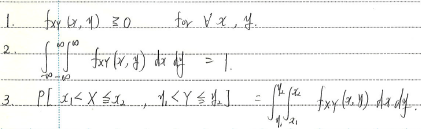 1. fxy(x, y) ≧ 0 for ∀x, y.
2. ∫_{-∞}^{∞} ∫_{-∞}^{∞} fxy(x, y) dx dy = 1.
3. P[x₁ < X ≦ x₂, y₁ < Y ≦ y₂] = ∫_{y₁}^{y₂} ∫_{x₁}^{x₂} fxy(x, y) dx dy.